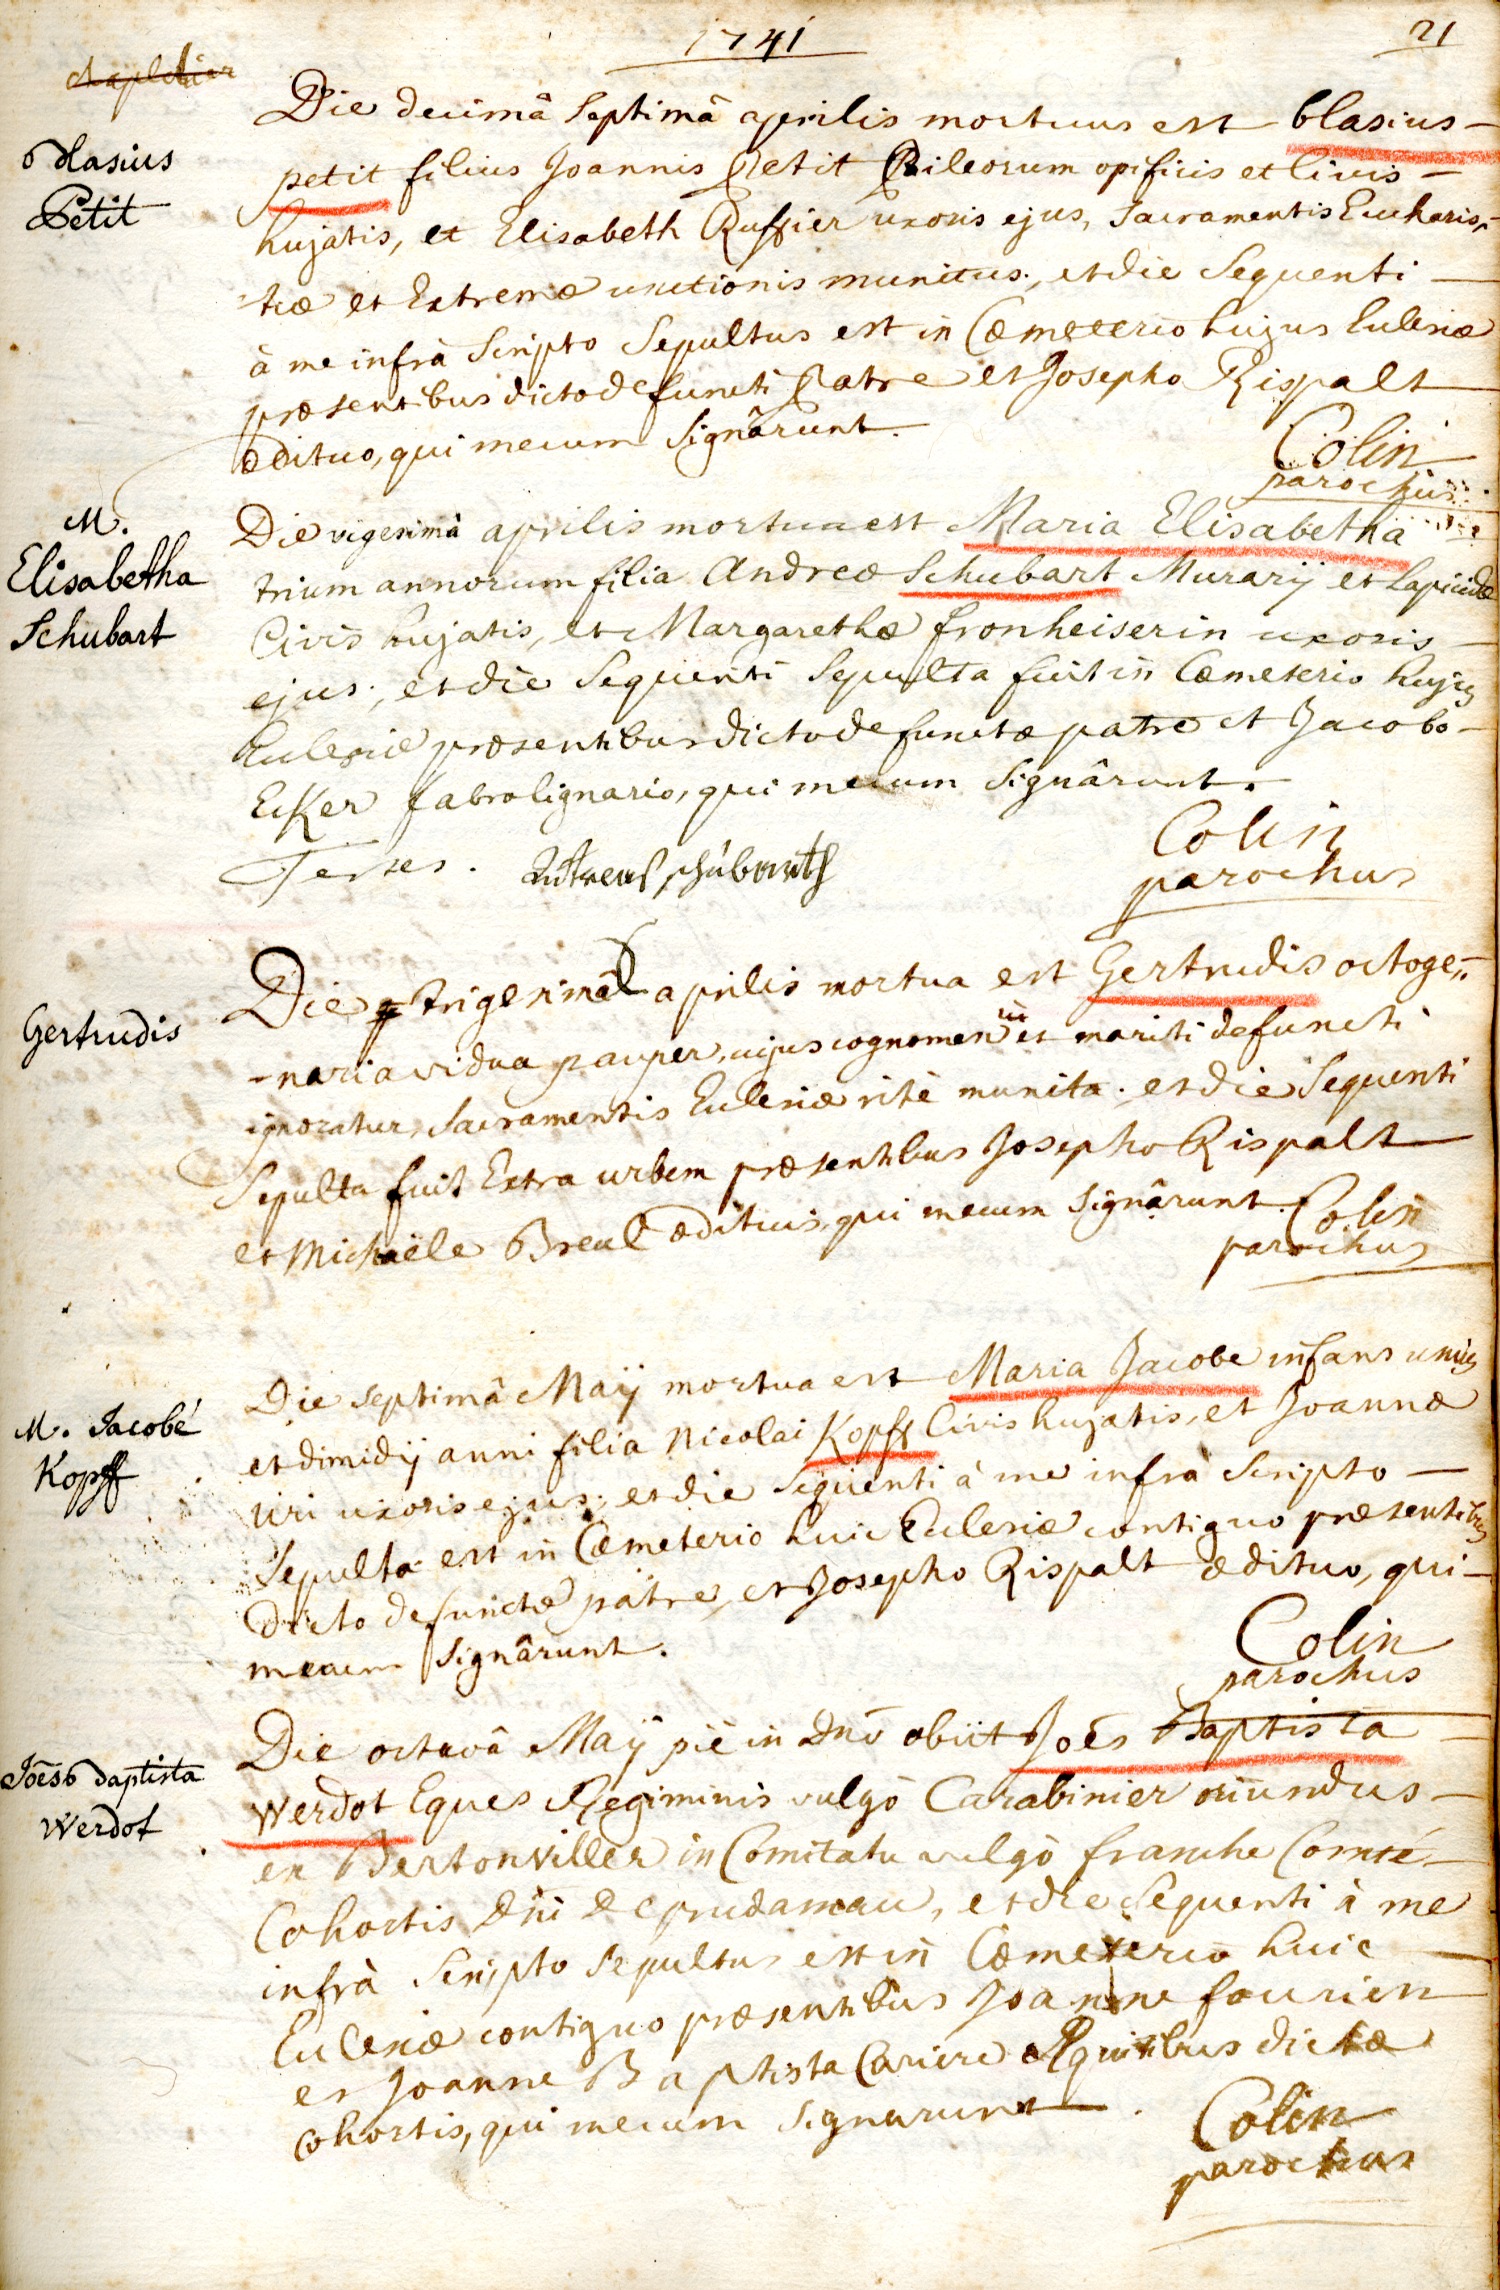 1741
21
Blasius
Petit
Die decimâ Septimâ aprilis mortuus est blasius
petit filius Joannis Petit Pileorum opificis et Civis
hujatis, et Elisabeth Ruffier uxoris ejus, Sacramentis Eucharis-
-tiæ et Extremæ unctionis munitus, et die Sequenti
à me infrà Scripto Sepultus est in Cœmeterio hujus Ecclesiæ
præsentibus dicto defuncti Patre et Josepho Rispalt
ædituo, qui mecum Signârunt.
Colin
parochus
M.
Elisabetha
Schubart
Die vigesimâ aprilis mortua est Maria Elisabetha
trium annorum filia Andreæ Schubart Murarij et Lapicidæ
Civis hujatis, et Margarethæ fronheiserin uxoris
ejus; et die Sequenti Sepulta fuit in Cœmeterio hujus
Ecclesiæ præsentibus dicto defunctæ patre et Jacobo
Ecker fabro lignario, qui mecum Signârunt.
Testes. Andreas Schubarth
Colin
parochus
Gertrudis
Die trigesimâ aprilis mortua est Gertrudis octoge-
-naria vidua pauper, cujus cognomen ut et mariti defuncti
ignoratur, Sacramentis Ecclesiæ ritè munita; et die Sequenti
Sepulta fuit Extra urbem præsentibus Josepho Rispalt
et Michaële Breul ædituis, qui mecum Signârunt.
Colin
parochus
M. Jacobé
Kopff
Die septimâ Maij mortua est Maria Jacobe infans unius
et dimidij anni filia Nicolai Kopff Civis hujatis, et Joannæ
Uri uxoris ejus; et die Sequenti à me infrà Scripto
Sepulta est in Cœmeterio huic Ecclesiæ contiguo præsentibus
dicto defunctæ patre, et Josepho Rispalt ædituo, qui
mecum Signârunt.
Colin
parochus
Jōes baptista
Werdot
Die octavâ Maij piè in Dnō obiit Joēs Baptista
Werdot Eques Regiminis vulgò Carabinier oriundus
ex Bertonviller in Comitatu vulgò franche Comté
Cohortis Dni De prudamau, et die Sequenti à me
infrà Scripto Sepultus est in Cœmeterio huic
Ecclesiæ contiguo præsentibus Joanne fourier
et Joanne Baptista Cariere Equitibus dictæ
Cohortis, qui mecum Signarunt.
Colin
parochus